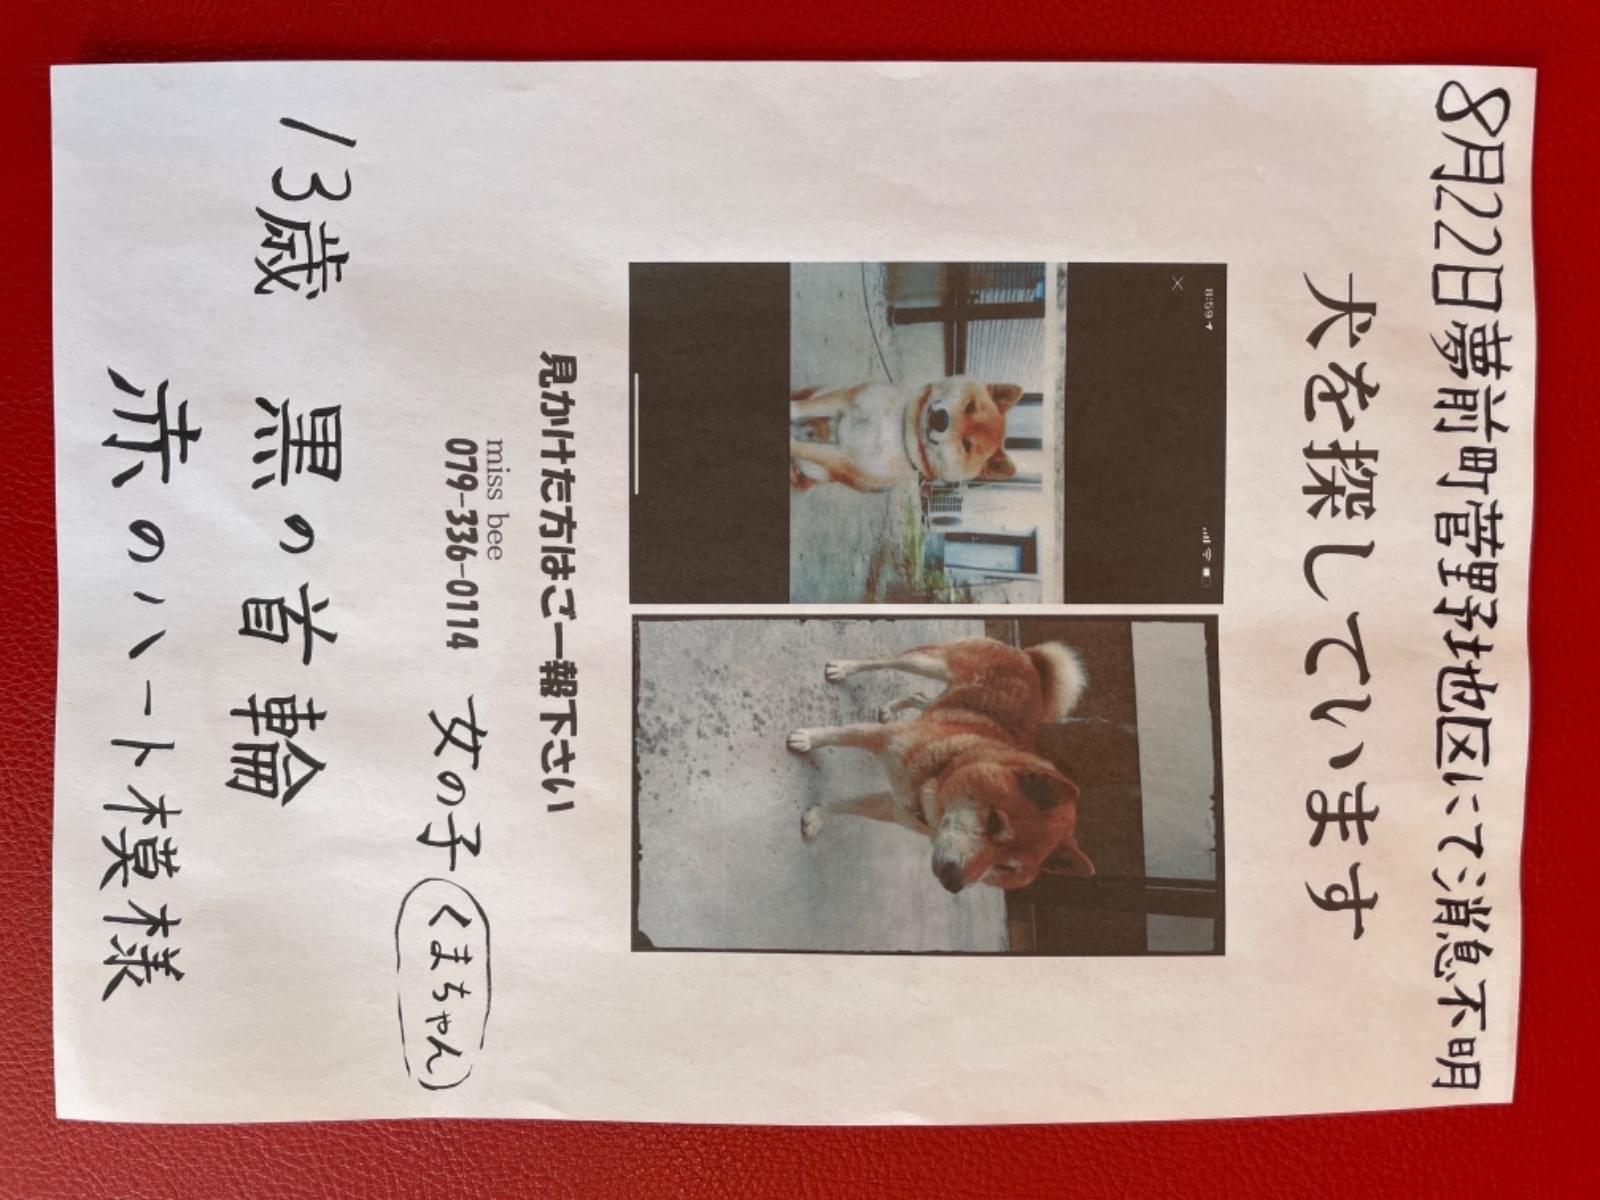 8月22日夢前町菅野地区にて消息不明
犬を探しています
8:59
見かけた方はご一報下さい
miss bee
079-336-0114
女の子 くまちゃん
13歳 黒の首輪
赤のハート模様